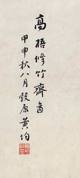 高梧修竹齋圖
甲申秋八月殷康黃均